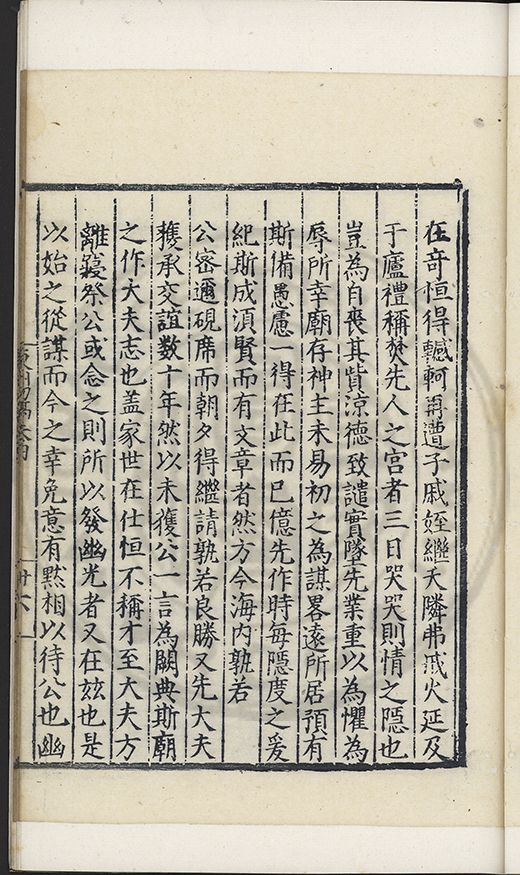 在奇恒得轗軻再遭子戚姪繼夭隣弗戒火延及
于廬禮稱焚先人之宫者三日哭哭則情之隱也
豈為自喪其貲涼德致譴實墜先業重以為懼為
辱所幸廟存神主未易初之為謀畧遠所居預有
斯備愚慮一得在此而已憶先作時每隱度之爰
紀斯成湏賢而有文章者然方今海内孰若
公宻邇硯席而朝夕得繼請孰若良勝又先大夫
獲承交誼数十年然以未獲公一言為闕典斯廟
之作大夫志也盖家世在仕恒不稱才至大夫方
離寢祭公或念之則所以發幽光者又在玆也是
以始之從謀而今之幸免意有黙相以待公也幽
卅六